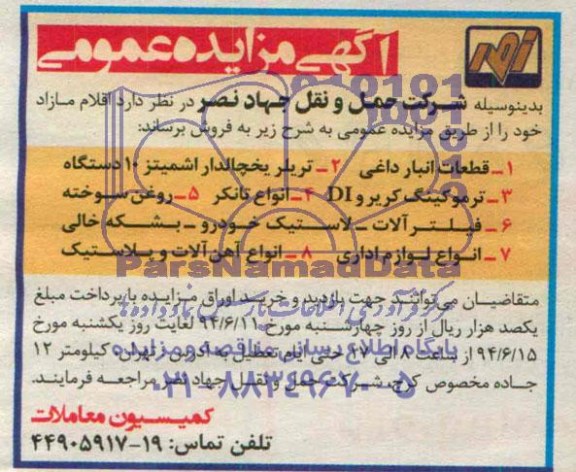 آگهی مزایده عمومی
نصر
بدینوسیله شرکت حمل و نقل جهاد نصر در نظر دارد اقلام مازاد
خود را از طریق مزایده عمومی به شرح زیر به فروش برساند:
۱ـ قطعات انبار داغی ۲ـ تریلر یخچالدار اشمیتز ۱۰ دستگاه
۳ـ ترموکینگ کریر و DI ۴ـ انواع تانکر ۵ـ روغن سوخته
۶ـ فیلترآلات ـ لاستیک خودرو ـ بشکه خالی
۷ـ انواع لوازم اداری ۸ـ انواع آهن آلات و پلاستیک
ParsNamadData
متقاضیان می‌توانند جهت بازدید و خرید اوراق مزایده با پرداخت مبلغ
یکصد هزار ریال از روز چهارشنبه مورخ ۹۴/۶/۱۱ لغایت روز یکشنبه مورخ
۹۴/۶/۱۵ از ساعت ۸ الی ۱۷ حتی ایام تعطیل به آدرس: تهران، کیلومتر ۱۲
جاده مخصوص کرج، شرکت حمل و نقل جهاد نصر مراجعه فرمایند.
پایگاه اطلاع رسانی مناقصه و مزایده
۰۲۱-۸۸۳۴۹۶۷۰-۵
کمیسیون معاملات
تلفن تماس: ۱۹-۴۴۹۰۵۹۱۷